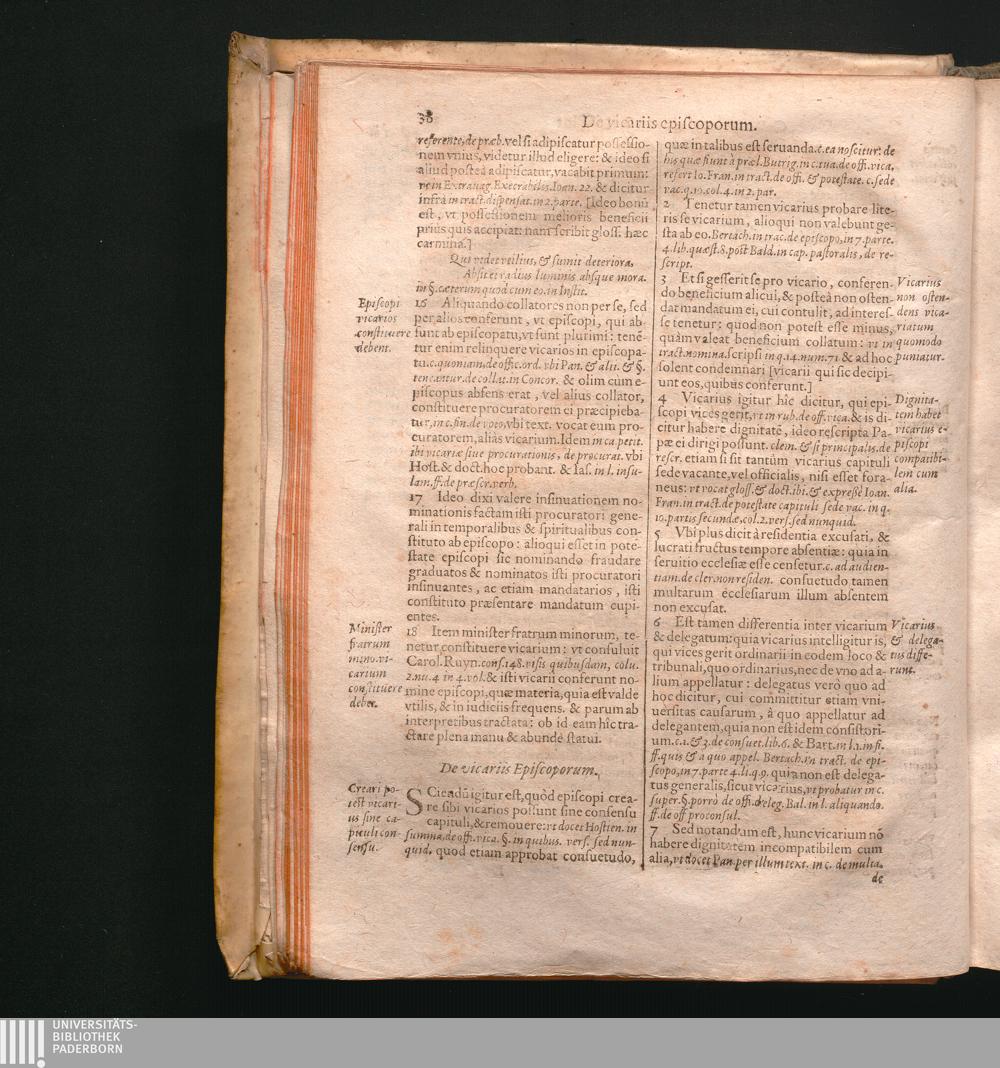 38
De vicariis episcoporum.
referente, de præb. vel si adipiscatur possessio-
nem vnius, videtur illud eligere: & ideo si
aliud posteà adipiscatur, vacabit primum:
vt in Extrauag. Execrabilis. Ioan. 22. & dicitur
infrà in tract. dispensat. in 2. parte. [Ideo bonũ
est, vt possessionem melioris beneficii
priùs quis accipiat: nam scribit gloss. hæc
carmina.]
Qui videt vtilius, & sumit deteriora,
Absit ei radius luminis absque mora.
in §. cæterum quod cum eo. in Instit.
Episcopi
vicarios
constituere
debent.
16 Aliquando collatores non per se, sed
per alios conferunt, vt episcopi, qui ab-
sunt ab episcopatu, vt sunt plurimi: tenẽ-
tur enim relinquere vicarios in episcopa-
tu. c. quoniam, de offic. ord. vbi Pan. & alii. & §.
teneantur. de collat. in Concor. & olim cum e-
piscopus absens erat, vel alius collator,
constituere procuratorem ei præcipieba-
tur, in c. fin. de voto, vbi text. vocat eum pro-
curatorem, aliàs vicarium. Idem in ca. petit.
ibi vicariæ siue procurationis, de procurat. vbi
Host. & doct. hoc probant. & Ias. in l. insu-
lam. ff. de præscr. verb.
17 Ideo dixi valere insinuationem no-
minationis factam isti procuratori gene-
rali in temporalibus & spiritualibus con-
stituto ab episcopo: alioqui esset in pote-
state episcopi sic nominando fraudare
graduatos & nominatos isti procuratori
insinuantes, ac etiam mandatarios, isti
constituto præsentare mandatum cupi-
entes.
Minister
fratrum
mino. vi-
carium
constituere
debet.
18 Item minister fratrum minorum, te-
netur constituere vicarium: vt consuluit
Carol. Ruyn. cons. 148. visis quibusdam, colu.
2. nu. 4 in 4. vol. & isti vicarii conferunt no-
mine episcopi, quæ materia, quia est valde
vtilis, & in iudiciis frequens. & parum ab
interpretibus tractata: ob id eam hîc tra-
ctare plena manu & abundè statui.
De vicariis Episcoporum.
Creari po-
test vicari-
us sine ca-
pituli con-
sensu.
SCiendũ igitur est, quòd episcopi crea-
re sibi vicarios possunt sine consensu
capituli, & remouere: vt docet Hostien. in
summa. de offi. vica. §. in quibus. vers. sed nun-
quid. quod etiam approbat consuetudo,
quæ in talibus est seruanda. c. ea noscitur. de
his quæ fiunt à præl. Butrig. in c. tua. de offi. vica.
refert Io. Fran. in tract. de offi. & potestate. c. sede
vac. q. 10. col. 4. in 2. par.
2 Tenetur tamen vicarius probare lite-
ris se vicarium, alioqui non valebunt ge-
sta ab eo. Bertach. in trac. de episcopo, in 7. parte.
4. lib. quæst. 8. post Bald. in cap. pastoralis, de re-
script.
3 Et si gesserit se pro vicario, conferen-
do beneficium alicui, & posteà non osten-
dat mandatum ei, cui contulit, ad interes-
se tenetur: quod non potest esse minus,
quàm valeat beneficium collatum: vt in
tract. nomina. scripsi in q. 14. num. 71 & ad hoc
solent condemnari [vicarii qui sic decipi-
unt eos, quibus conferunt.]
Vicarius
non osten-
dens vica-
riatum
quomodo
puniatur.
4 Vicarius igitur hîc dicitur, qui epi-
scopi vices gerit, vt in rub. de off. vica. & is di-
citur habere dignitatẽ, ideo rescripta Pa-
pæ ei dirigi possunt. clem. & si principalis. de
rescr. etiam si sit tantùm vicarius capituli
sede vacante, vel officialis, nisi esset fora-
neus: vt vocat gloss. & doct. ibi. & expressè Ioan.
Fran. in tract. de potestate capituli sede vac. in q.
10. partis secundæ, col. 2. vers. sed nunquid.
Dignita-
tem habet
vicarius e-
piscopi
compatibi-
lem cum
alia.
5 Vbi plus dicit à residentia excusati, &
lucrati fructus tempore absentiæ: quia in
seruitio ecclesiæ esse censetur. c. ad audien-
tiam. de cler. non residen. consuetudo tamen
multarum ecclesiarum illum absentem
non excusat.
6 Est tamen differentia inter vicarium
& delegatum: quia vicarius intelligitur is,
qui vices gerit ordinarii in eodem loco &
tribunali, quo ordinarius, nec de vno ad a-
lium appellatur: delegatus verò quo ad
hoc dicitur, cui committitur etiam vni-
uersitas causarum, à quo appellatur ad
delegantem, quia non est idem consistori-
um. c. 1. & 3. de consuet. lib. 6. & Bart. in l. 1. in fi.
ff. quis & a quo appel. Bertach. in tract. de epi-
scopo, in 7. parte 4. li. q. 9. quia non est delega-
tus generalis, sicut vicarius, vt probatur in c.
super. §. porrò de offi. deleg. Bal. in l. aliquando.
ff. de off proconsul.
Vicarius
& delega-
tus diffe-
runt.
7 Sed notandum est, hunc vicarium nõ
habere dignitatem incompatibilem cum
alia, vt docet Pan. per illum text. in c. de multa.
de
UNIVERSITÄTS-
BIBLIOTHEK
PADERBORN